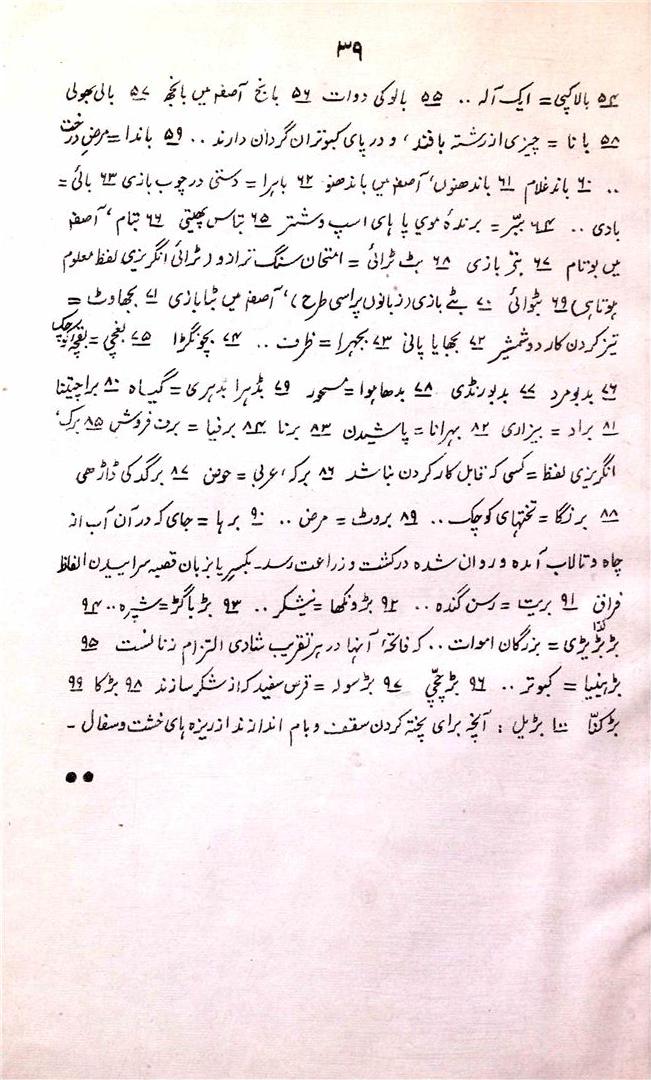 ۳۹
۵۴ بالاکپی = ایک آلہ .. ۵۵ بالو کی دوات ۵۶ بانج آصفہ میں بانجھ ۵۷ بالی بھولی
۵۸ بانا = چیزی از رشتہ بافند، و در پای کبوتران گردان دارند .. ۵۹ باندا = مرض درخت
.. ۶۰ باند غلام ۶۱ باندھنوں، آصفہ میں باندھنو ۶۲ باہرا = دستی در چوب بازی ۶۳ بائی =
بادی .. ۶۴ ببّر = برندہ موی یا ہای اسپ و شتر ۶۵ بتاس پھیتی ۶۶ بتام، آصفہ
میں بوتام ۶۷ بتّر بازی ۶۸ بٹ ٹرائی = امتحان سنگ ترازو (ٹرائی انگریزی لفظ معلوم
ہوتا ہی) ۶۹ بٹوائی ۷۰ بٹے بازی (زبانوں پر اسی طرح)، آصفہ میں بٹا بازی ۷۱ بجھاوٹ =
تیز کردن کارد و شمشیر ۷۲ بجھایا پانی ۷۳ بجہرا = ظرف .. ۷۴ بچونگڑا ۷۵ بغچی = بغچۂ کوچک
۷۶ بدبومرد ۷۷ بدبورنڈی ۷۸ بدھا ہوا = مسحور ۷۹ بڈہرا بدہری = گیاہ ۸۰ براچیتنا
۸۱ براد = بیزاری ۸۲ بہرانا = پاشیدن ۸۳ برنا ۸۴ برفیا = برف فروش ۸۵ برک،
انگریزی لفظ = کسی کہ قابل کار کردن نباشد ۸۶ برکہ، عربی = حوض ۸۷ برگد کی ڈاڑھی
۸۸ برنگا = تختہای کوچک .. ۸۹ بروٹ = مرض .. ۹۰ برہا = جای کہ در آن آب از
چاہ و تالاب آمدہ و روان شدہ در کشت و زراعت رسد۔ بکسر یا بزبان قصبہ سراییدن الفاظ
فراق ۹۱ بریت = رسن گندہ .. ۹۲ بڑونکھا = نیشکر .. ۹۳ بڑباگڑ = شپرہ .. ۹۴
بڑبڑیڑی = بزرگان اموات .. کہ فاتحۂ آنہا در ہر تقریب شادی التزام زنانست ۹۵
بڑہنیا = کبوتر .. ۹۶ بڑچّی ۹۷ بڑسولہ = قرص سفید کہ از شکر سازند ۹۸ بڑکا ۹۹
بڑکنّا ۱۰۰ بڑیل : آنچہ برای پختہ کردن سقف و بام اندازند از ریزہ ہای خشت و سفال ۔